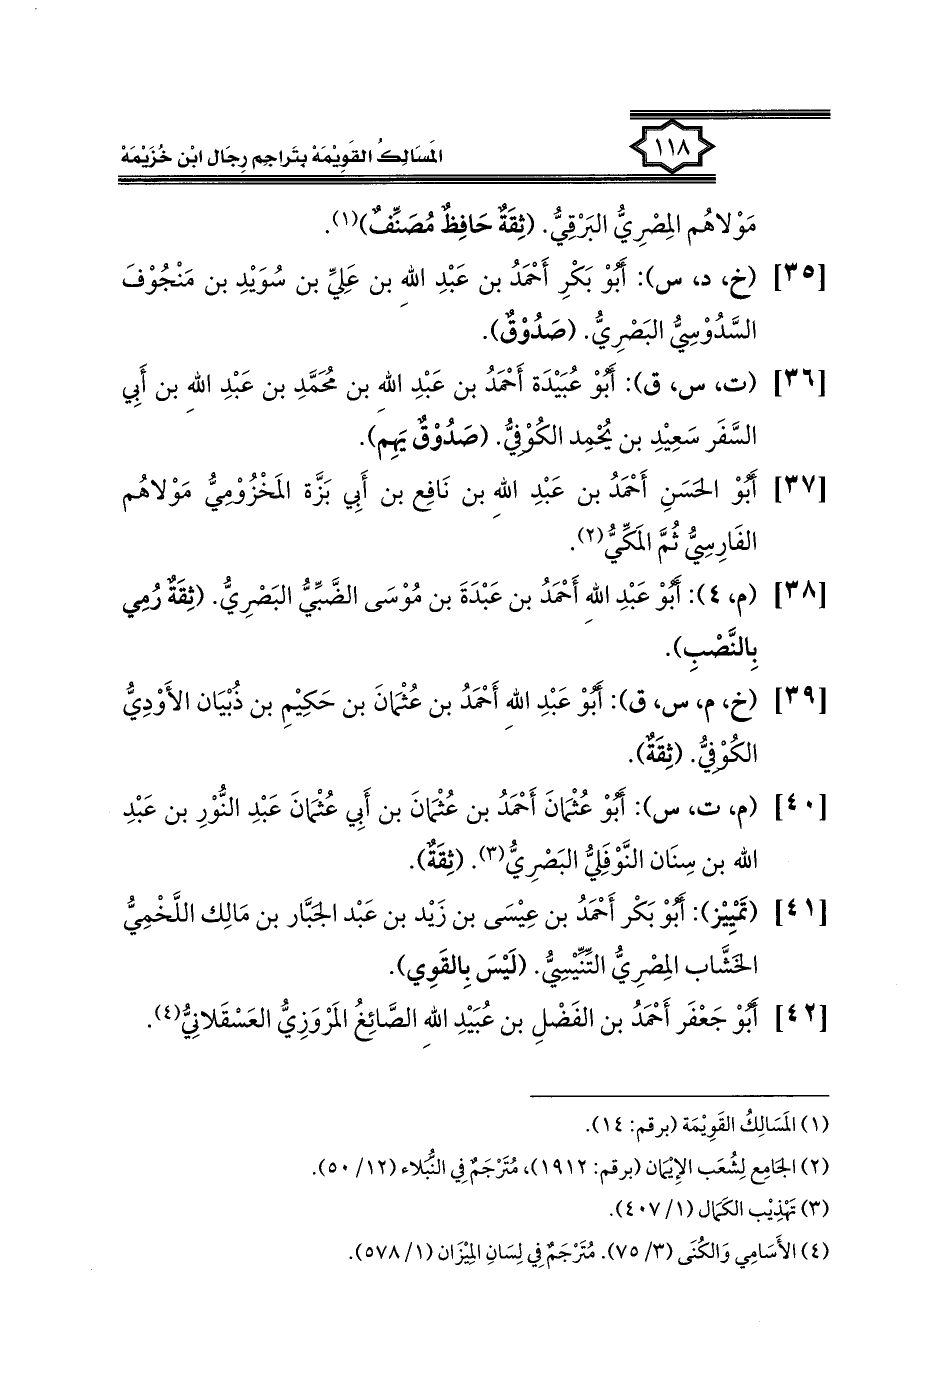 ١١٨
المَسَالِكُ القَوِيْمَة بتَراجِم رِجَال ابْن خُزَيْمَة
مَوْلاهُم المِصْرِيُّ البَرْقِيُّ. (ثِقَةٌ حَافِظٌ مُصَنِّفٌ)(١).
[٣٥] (خ، د، س): أَبُوْ بَكْرِ أَحْمَدُ بن عَبْدِ الله بن عَلِيِّ بن سُوَيْدِ بن مَنْجُوْفَ
السَّدُوْسِيُّ البَصْرِيُّ. (صَدُوْقٌ).
[٣٦] (ت، س، ق): أَبُوْ عُبَيْدَة أَحْمَدُ بن عَبْدِ اللهِ بن مُحَمَّدِ بن عَبْدِ اللهِ بن أَبي
السَّفَر سَعِيْدِ بن يُحْمِد الكُوْفِيُّ. (صَدُوْقٌ يَهِم).
[٣٧] أَبُوْ الحَسَنِ أَحْمَدُ بن عَبْدِ اللهِ بن نَافِعِ بن أَبي بَزَّة المَخْزُومِيُّ مَوْلاهُم
الفَارِسِيُّ ثُمَّ المَكِّيُّ(٢).
[٣٨] (م، ٤): أَبُوْ عَبْدِ اللهِ أَحْمَدُ بن عَبْدَةَ بن مُوْسَى الضَّبِّيُّ البَصْرِيُّ. (ثِقَةٌ رُمِي
بِالنَّصْبِ).
[٣٩] (خ، م، س، ق): أَبُوْ عَبْدِ اللهِ أَحْمَدُ بن عُثْمَانَ بن حَكِيْمِ بن ذُبْيَان الأَوْدِيُّ
الكُوْفِيُّ. (ثِقَةٌ).
[٤٠] (م، ت، س): أَبُوْ عُثْمَانَ أَحْمَدُ بن عُثْمَانَ بن أَبي عُثْمَانَ عَبْدِ النُّوْرِ بن عَبْدِ
الله بن سِنَان النَّوْفَلِيُّ البَصْرِيُّ(٣). (ثِقَةٌ).
[٤١] (تَمْيِيْز): أَبُوْ بَكْر أَحْمَدُ بن عِيْسَى بن زَيْد بن عَبْد الجَبَّار بن مَالِك اللَّخْمِيُّ
الخَشَّاب المِصْرِيُّ التِّنِّيْسِيُّ. (لَيْسَ بِالقَوِي).
[٤٢] أَبُوْ جَعْفَر أَحْمَدُ بن الفَضْلِ بن عُبَيْدِ اللهِ الصَّائِغُ المَرْوَزِيُّ العَسْقَلانِيُّ(٤).
(١) المَسَالِكُ القَوِيْمَة (برقم: ١٤).
(٢) الجَامِع لِشُعَب الإِيْمَان (برقم: ١٩١٢)، مُتَرْجَمٌ فِي النُّبَلاء (١٢/ ٥٠).
(٣) تَهْذِيْب الكَمَال (١/ ٤٠٧).
(٤) الأَسَامِي وَالكُنَى (٣/ ٧٥). مُتَرْجَمٌ فِي لِسَانِ المِيْزَان (١/ ٥٧٨).